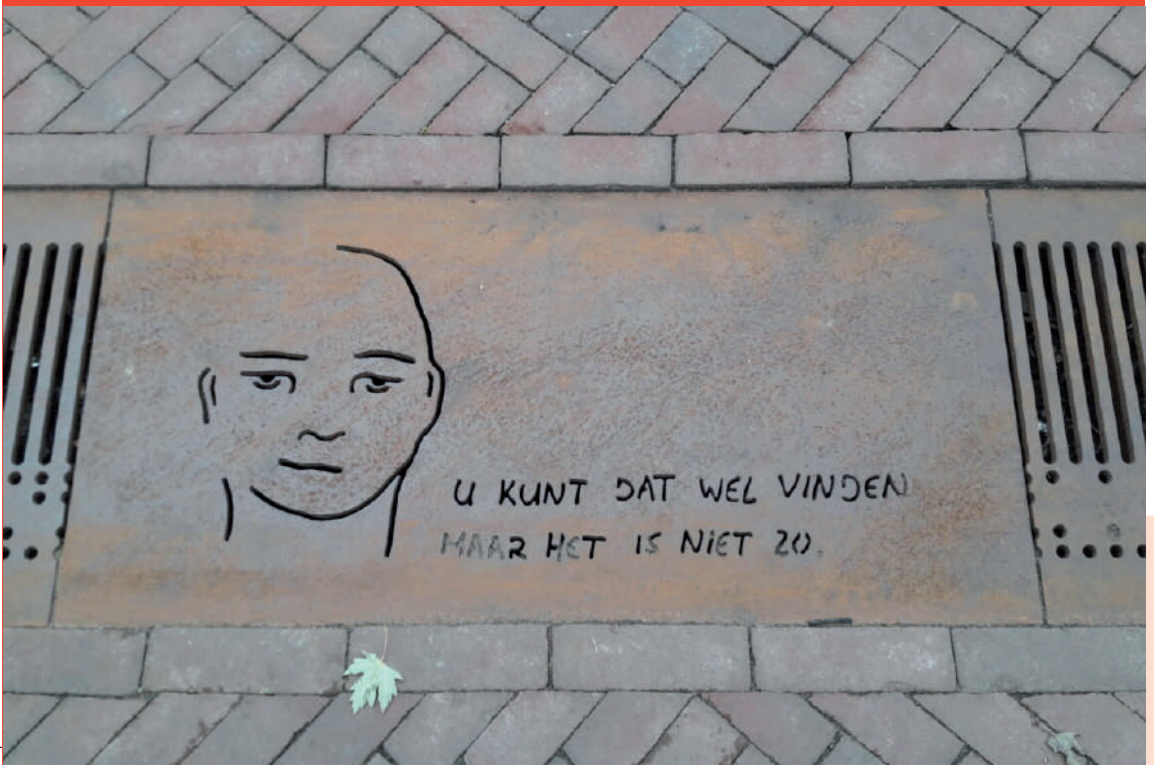 U KUNT DAT WEL VINDEN
MAAR HET IS NIET ZO.